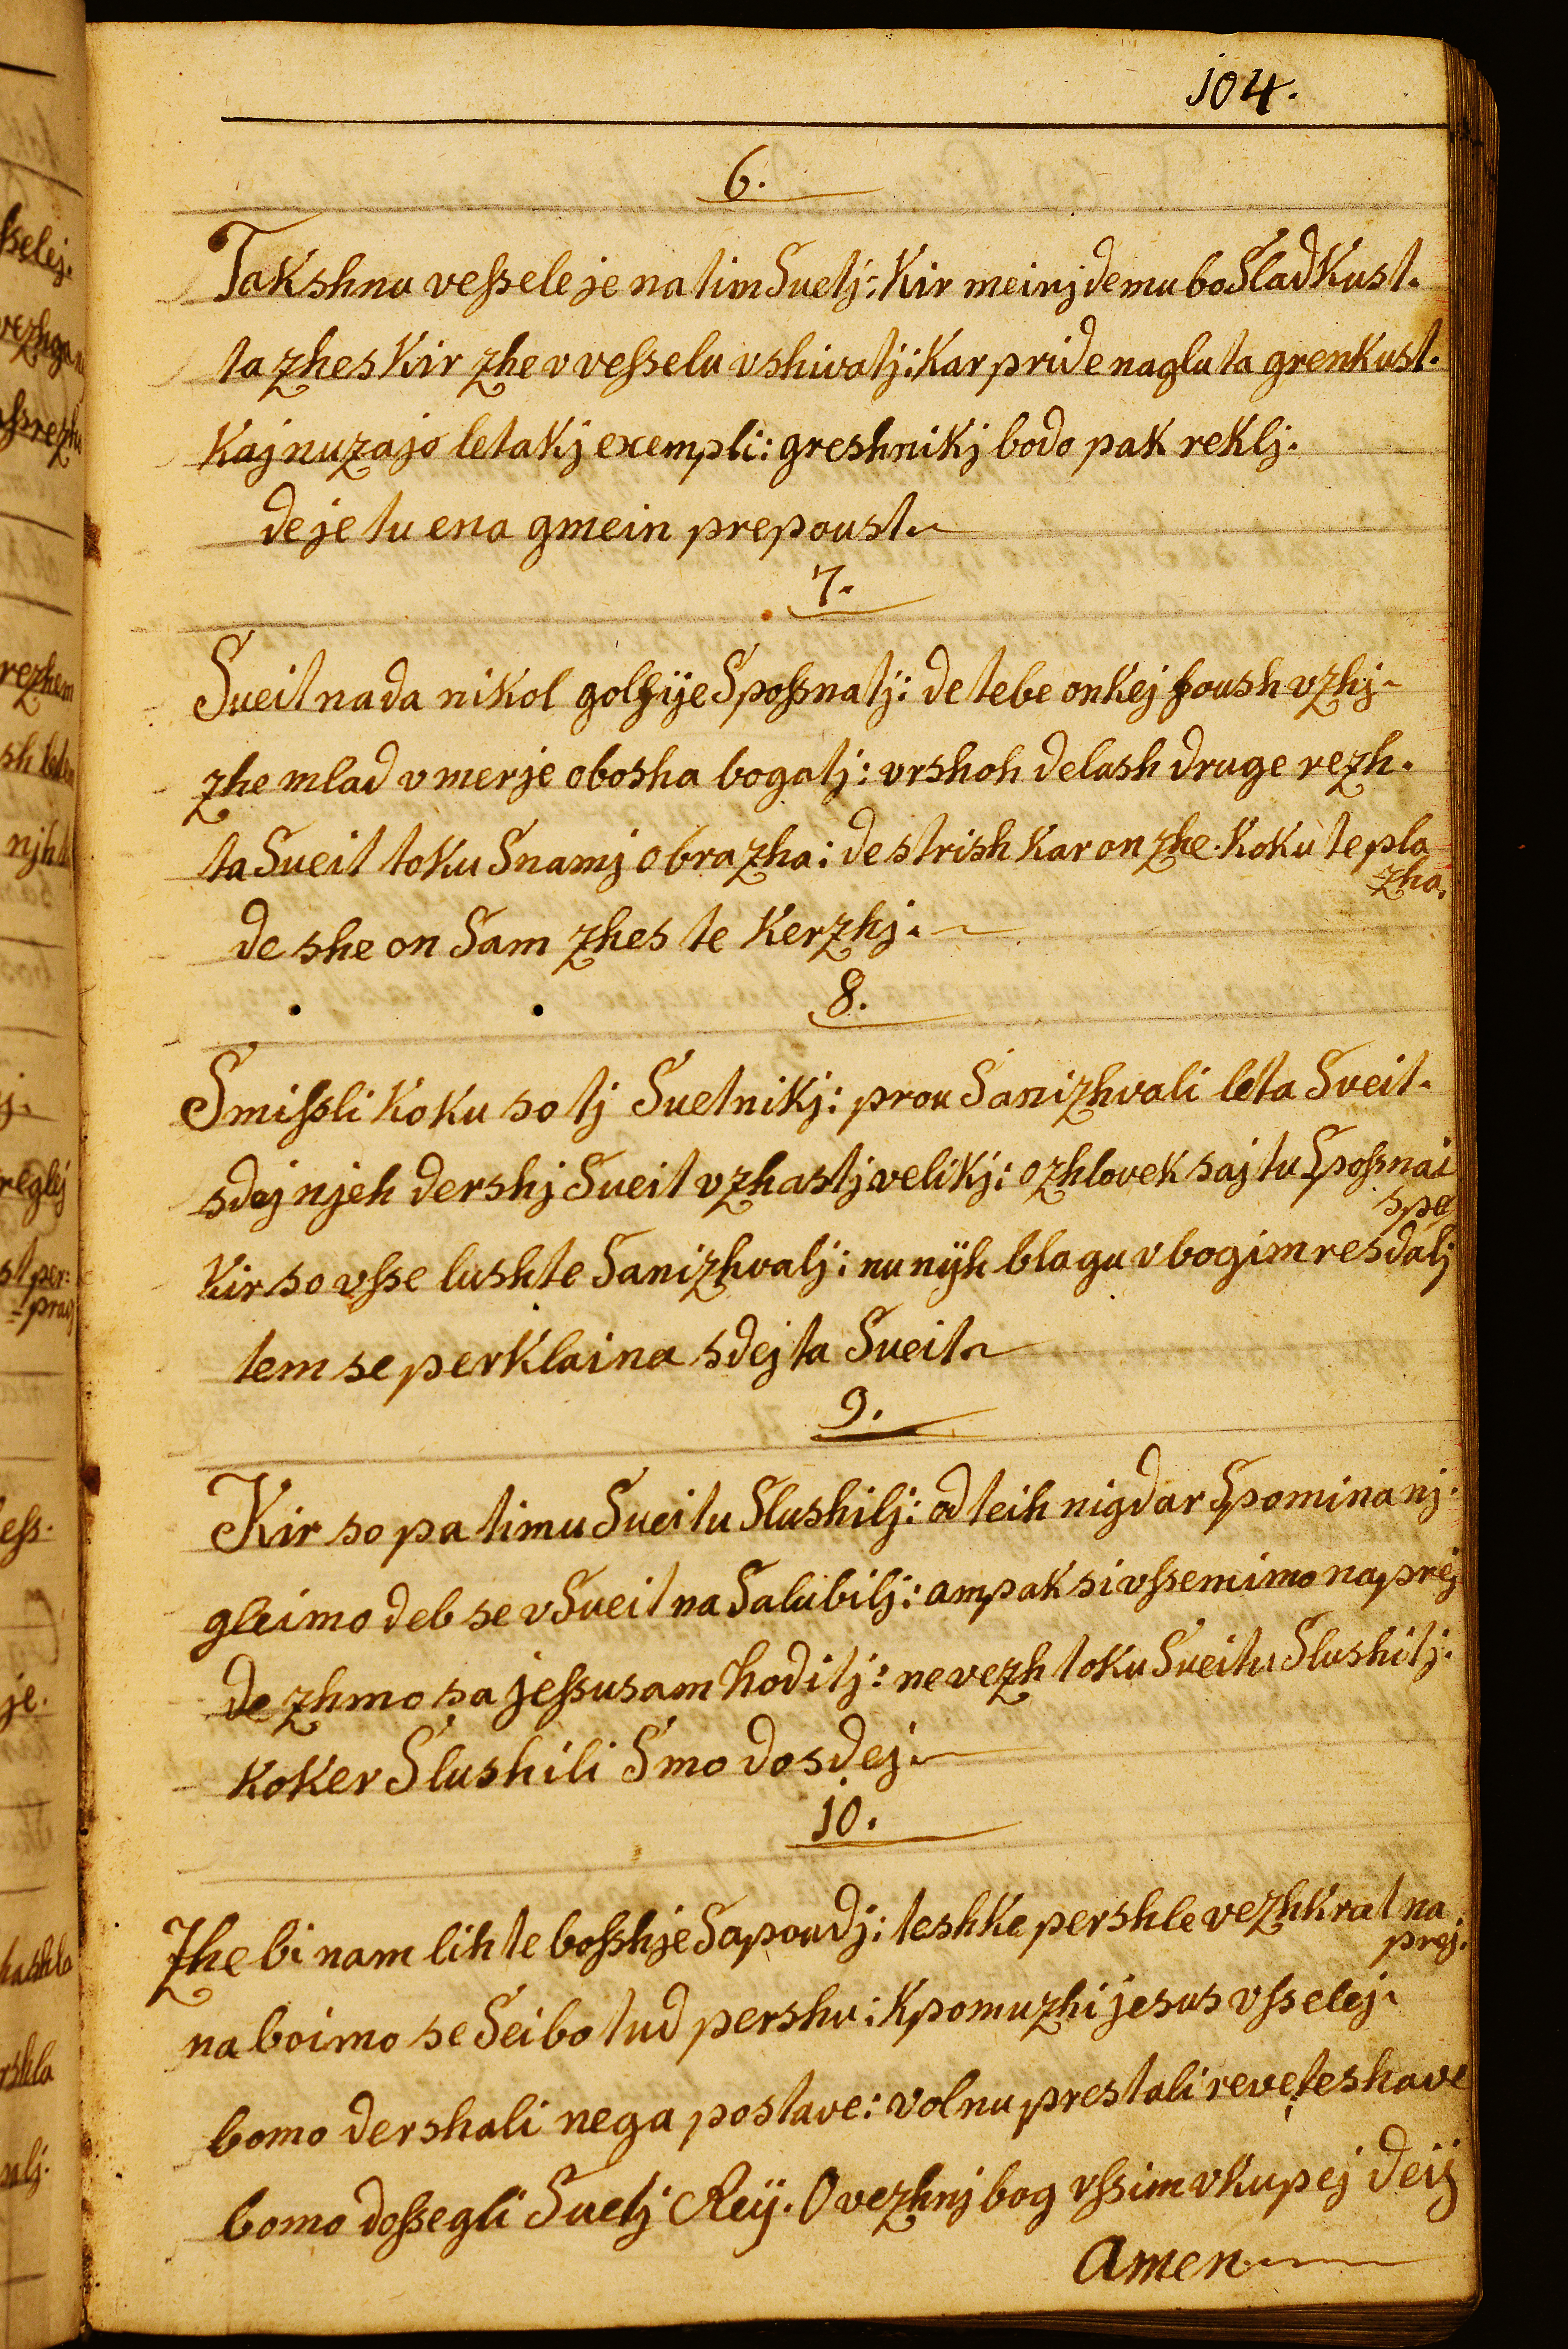 104.
6.
Takshnu veſsele je na tim Suetj: Kir meinj de mu bo SladKust.
ta zhes Kir zhe v veſselu vshivatj: Kar pride naglu ta grenkust.
Kaj nuzajo letakj exempli: greshnikj bodo pak reklj.
de je tu ena gmein prepoust
7.
Sueit na da nikol golſije Spoſsnatj: de tebe on kej ſoush vzhj
zhe mlad v merje obosha bogatj: vrshoh delash druge rezh.
ta Sueit toku Snamj obrazha: de strish Kar on zhe. Koku te pla
zha.
de she on Sam zhes te Kerzhj.
8.
Smiſsli Koku so tj Suetnikj: prou Sanizhvali leta Sveit.
sdej njeh dershj Sueit v zhastj velikj: o zhlovek saj tu Spoſsnai
spe
Kir so vſse lushte Sanizhvalj: nu nijh blagu v bogim resdalj
tem se perklaina sdej ta Sueit
9.
Kir so pa timu Sueitu Slushilj: od teih nigdar Spomina nj.
gleimo deb se v Sueit na Salubilj: ampak si vſsemimo naprej
de zhmo sa jeſsusam hoditj: ne vezh toku Sueitu Slushitj.
koker Slushili Smo do sdej.
10.
Zhe bi nam lih te boſshje Sapoudj: teshke pershle vezhkrat na
prej.
na boimo se Sei bo tud pershu: K pomuzhi jesus vſselej
bomo dershali nega postave: volnu prestali reve teshave
bomo doſsegli Suetj Reij. O vezhnj bog vſsim vkupej deij
amen